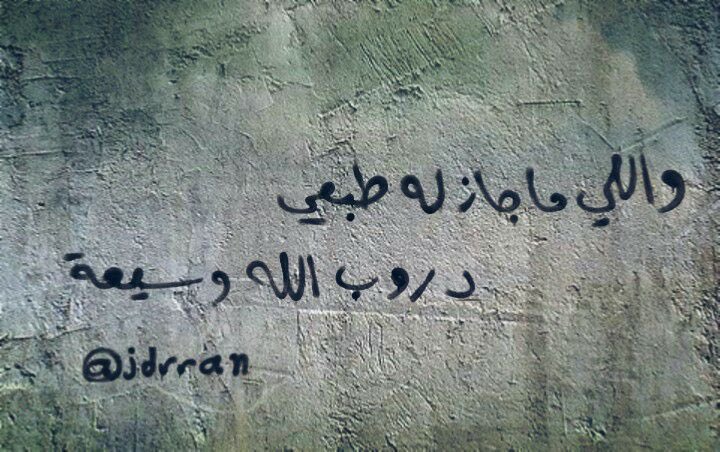 واللي ما جاز له طبعي
دروب الله وسيعة
@jdrran